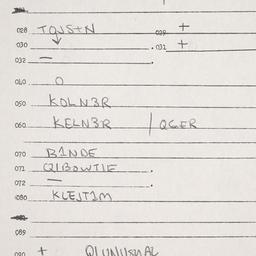 028 TQJS+N 029 +
030 . 031 +
032 —
040 O
050 KDLN3R
060 KELN3R / QGER
070 B1NDE
071 Q1BOWTIE .
072 — .
080 KLEJT1M
089
090 + QUNUSUAL